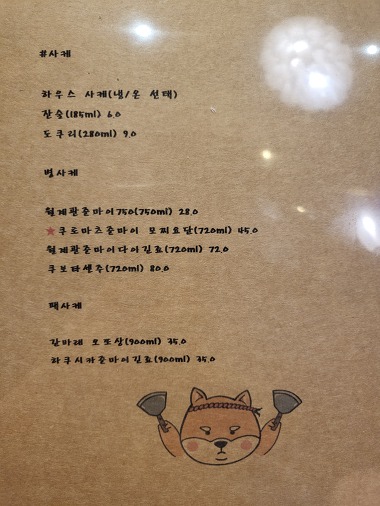 #사케
하우스 사케(냉/온 선택)
잔술(185ml) 6.0
도쿠리(280ml) 9.0
병사케
월계관준마이750(750ml) 28.0
★쿠로마츠준마이 모찌요달(720ml) 45.0
월계관준마이다이긴죠(720ml) 72.0
쿠보타센주(720ml) 80.0
팩사케
간바레 오또상(900ml) 35.0
하쿠시카준마이긴죠(900ml) 35.0